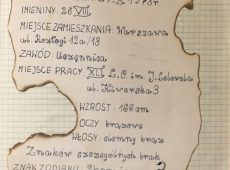 IMIENINY: 26 VII.
MIEJSCE ZAMIESZKANIA: Warszawa
ul. Rozłogi 12a/18
ZAWÓD: Uczennica
MIEJSCE PRACY: XLI L.O. im J. Lelewela
ul. Kiwerska 3
WZROST: 166 cm
OCZY: brązowe
WŁOSY: ciemny brąz
Znaków szczególnych brak
ZNAK ZODIAKU: